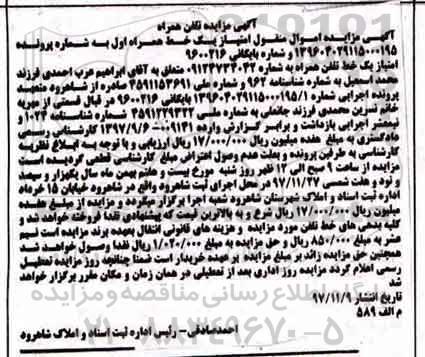 آگهی مزایده تلفن همراه
آگهی مزایده اموال منقول امتیاز یک خط همراه اول به شماره پرونده
۱۳۹۶۰۴۰۲۹۱۱۵۰۰۰۱۹۵ و شماره بایگانی ۹۶۰۰۲۱۶
امتیاز یک خط تلفن همراه به شماره ۰۹۱۲۴۷۳۴۰۴۲ متعلق به آقای ابراهیم عرب احمدی فرزند
محمد اسمعیل به شماره شناسنامه ۹۶۲ و شماره ملی ۴۵۹۱۱۵۳۶۹۱ صادره از شاهرود متعهد
پرونده اجرایی شماره ۱۳۹۶۰۴۰۲۹۱۱۵۰۰۰۱۹۵/۱ بایگانی ۹۶۰۰۲۱۶ در قبال قسمتی از مهریه
خانم نسرین محمدی فرزند جانعلی به شماره ملی ۴۵۹۱۲۲۹۳۲۲ شماره شناسنامه ۱۰۲۳ و
نیمعشر اجرایی بازداشت و برابر گزارش وارده ۰۰۹۱۳۱ - ۱۳۹۷/۹/۶ کارشناس رسمی
دادگستری به مبلغ هفده میلیون ریال ۱۷/۰۰۰/۰۰۰ ریال ارزیابی و با توجه به ابلاغ نظریه
کارشناسی به طرفین پرونده و بعلت عدم وصول اعتراض مبلغ کارشناسی قطعی گردیده است
مزایده از ساعت ۹ صبح الی ۱۲ ظهر روز شنبه مورخ بیست و هفتم بهمن ماه سال یکهزار و سیصد
و نود و هفت شمسی ۹۷/۱۱/۲۷ در محل اجرای ثبت شاهرود واقع در شاهرود خیابان ۱۵ خرداد
اداره ثبت اسناد و املاک شهرستان شاهرود شعبه اجرا برگزار میگردد و مزایده از مبلغ هفده
میلیون ریال ۱۷/۰۰۰/۰۰۰ ریال شروع و به بالاترین قیمت که پیشنهادی نقدا فروخته خواهد شد و
کلیه بدهی های خط تلفن مورد مزایده و هزینه های قانونی انتقال بعهده برنده مزایده است نیم
عشر به مبلغ ۸۵۰/۰۰۰ ریال و حق مزایده به مبلغ ۱/۰۲۰/۰۰۰ ریال نقدا وصول خواهد شد
همچنین حق مزایده زائد بر مبلغ مزایده بر عهده خریدار است ضمنا چنانچه روز مزایده تعطیل
رسمی اعلام گردد مزایده روز اداری بعد از تعطیلی در همان زمان و مکان مقرر برگزار خواهد
شد
تاریخ انتشار ۹۷/۱۱/۹
م الف ۵۸۹
احمدصادقی - رئیس اداره ثبت اسناد و املاک شاهرود
پایگاه اطلاع رسانی مناقصه و مزایده
۰۲۱-۸۸۳۴۹۶۷۰-۵